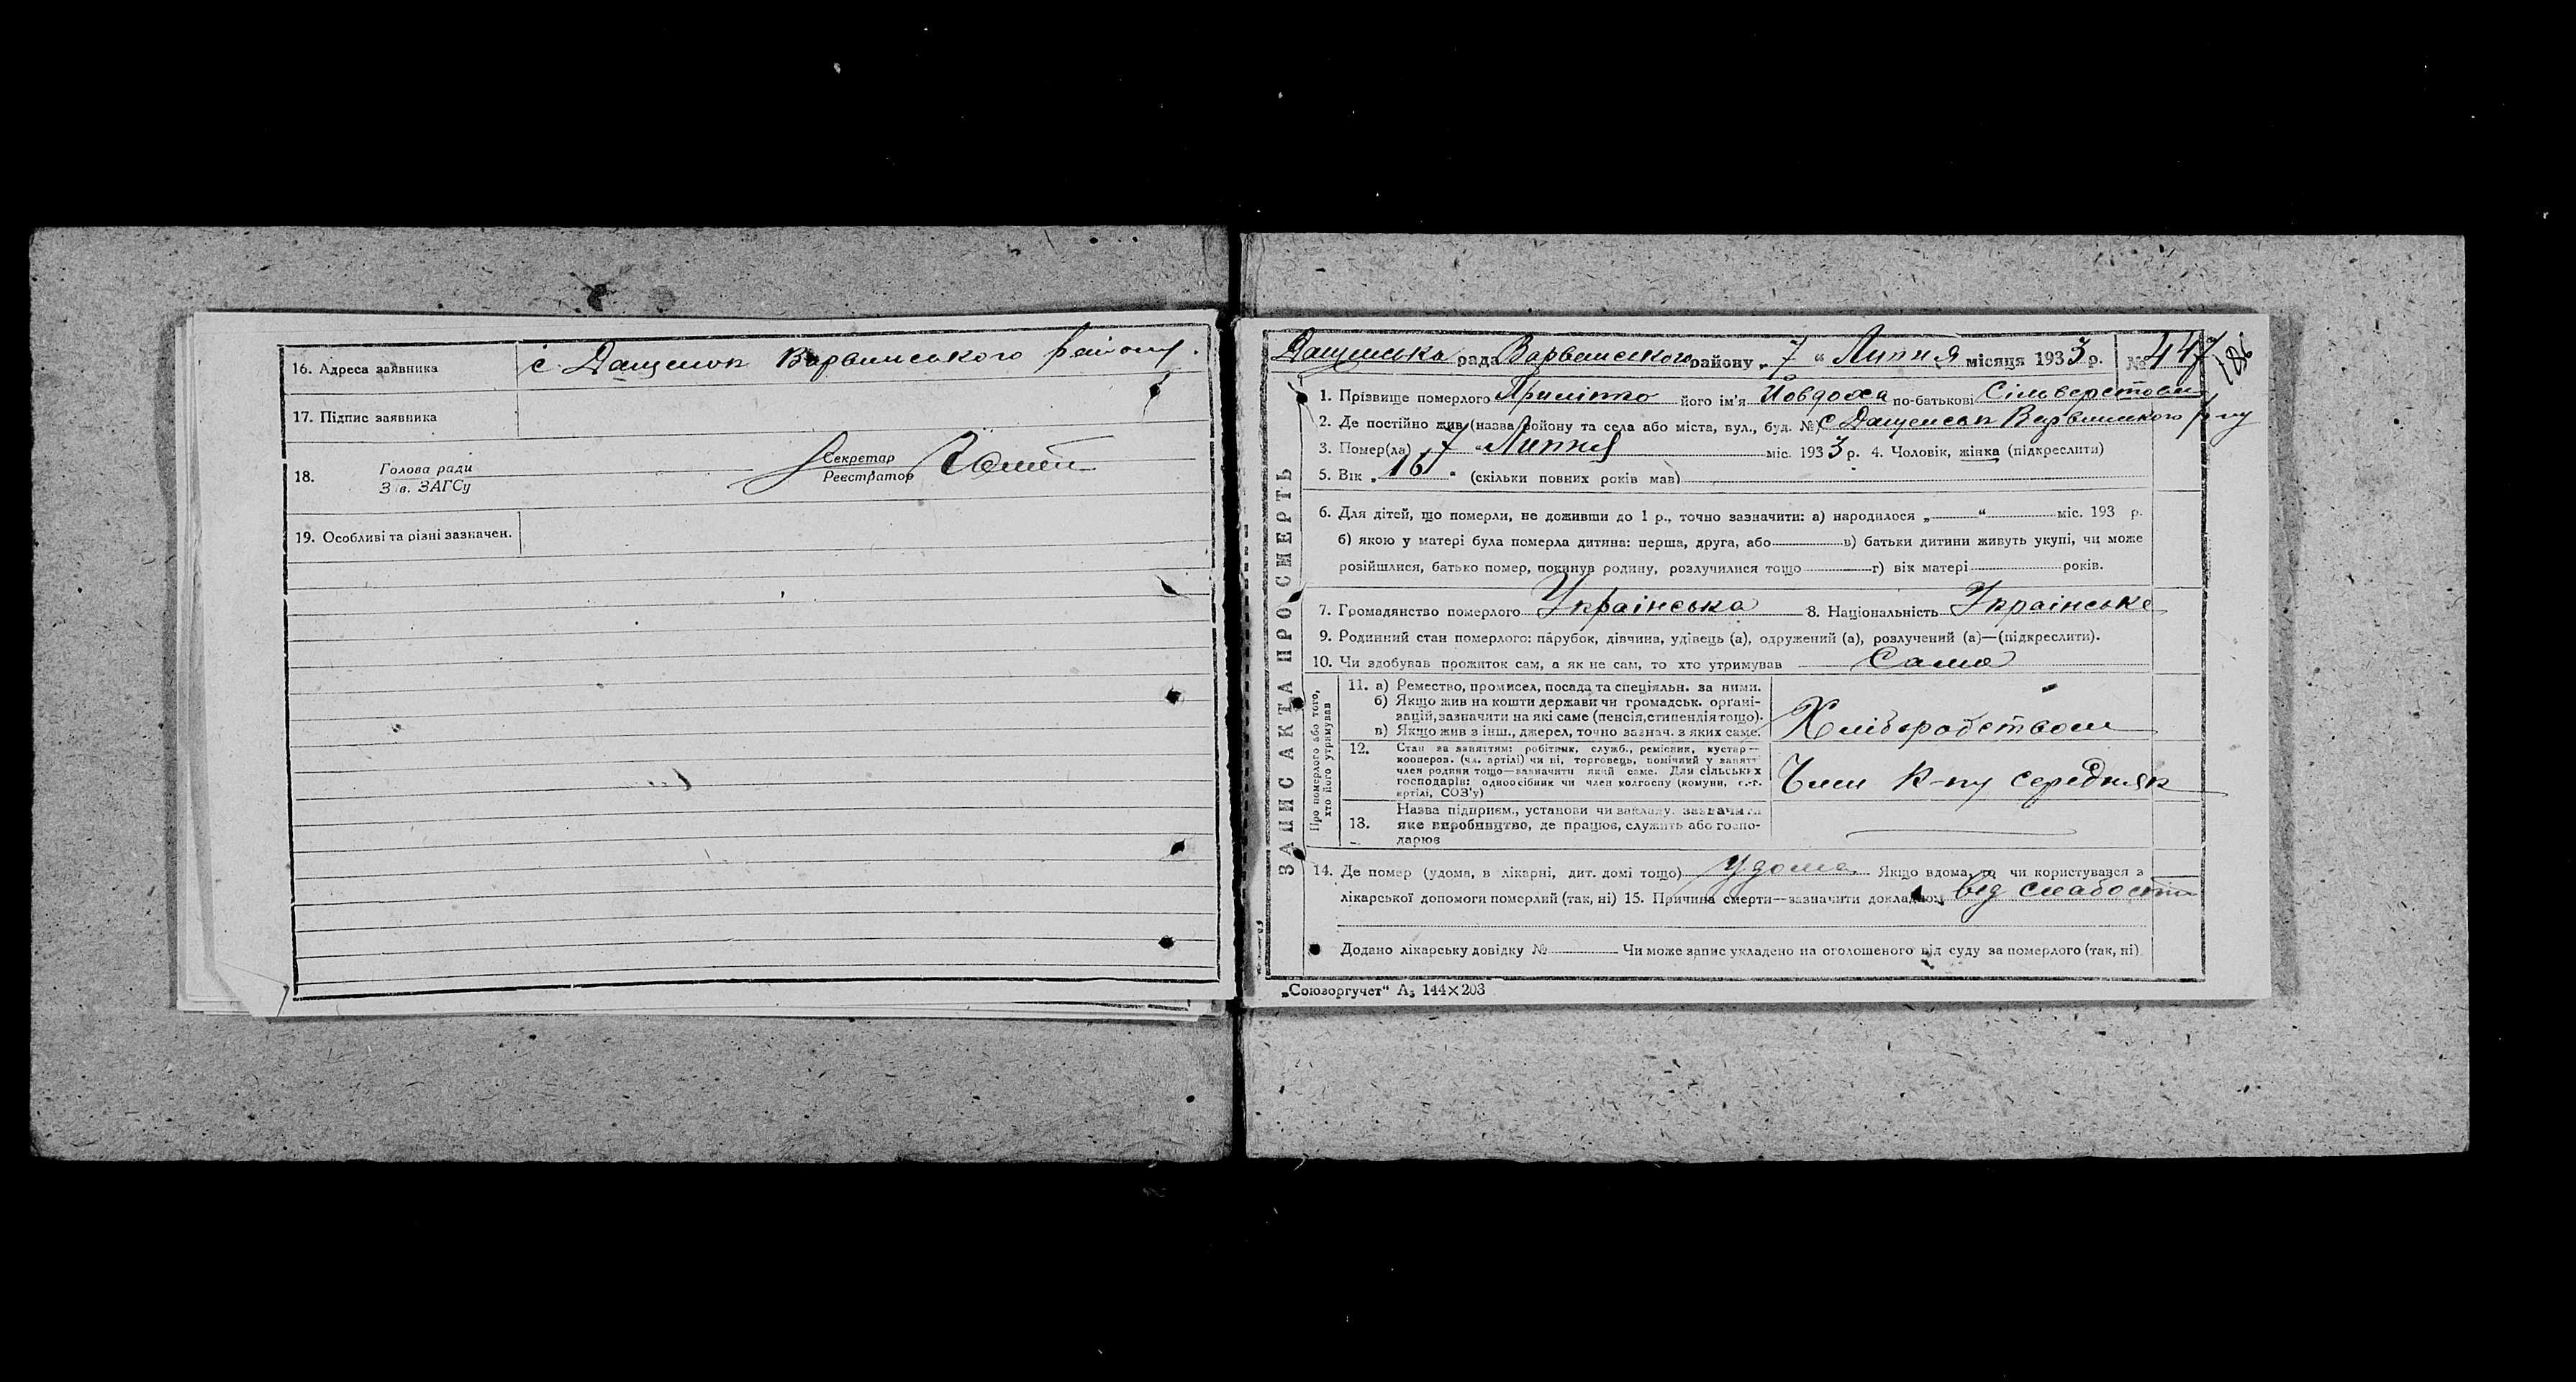 16. Адреса заявника с. Дащенок Варвинського району.
17. Підпис заявника
18. Голова ради Секретар
Зав. ЗАГСу Реєстратор
19. Особливі та різні зазначен.
Дащенська рада Варвинського району „7“ Липня місяця 1933 р. № 447
186
ЗАПИС АКТА ПРО СМЕРТЬ
1. Прізвище померлого його ім'я Йовдоха по-батькові Сільверстовн
2. Де постійно жив (назва району та села або міста, вул., буд. №) с Дащенськ Варвинського р-ну
3. Помер(ла) „7“ Липня міс. 1933 р. 4. Чоловік, жінка (підкреслити)
5. Вік „16“ (скільки повних років мав)
6. Для дітей, що померли, не доживши до 1 р., точно зазначити: а) народилося „ “ міс. 193 р.
б) якою у матері була померла дитина: перша, друга, або в) батьки дитини живуть укупі, чи може
розійшлися, батько помер, покинув родину, розлучилися тощо г) вік матері років.
7. Громадянство померлого Українська 8. Національність Українська
9. Родинний стан померлого: парубок, дівчина, удівець (а), одружений (а), розлучений (а)—(підкреслити).
10. Чи здобував прожиток сам, а як не сам, то хто утримував Сама
Про померлого або того,
хто його утримував
11. а) Ремество, промисел, посада та спеціяльн. за ними.
б) Якщо жив на кошти держави чи громадськ. органі-
зацій, зазначити на які саме (пенсія, стипендія тощо).
в) Якщо жив з інш., джерел, точно зазнач. з яких саме.
Хліборобством
12. Стан за заняттям: робітник, служб., ремісник, кустар—
кооперов. (чл. артілі) чи ні, торговець, помічний у занятт
член родини тощо—зазначити який саме. Для сільських
господарів: одноосібник чи член колгоспу (комуни, с.-г.
артілі, СОЗ'у)
Член к-пу середняк
13. Назва підприєм., установи чи закладу, зазначити
яке виробництво, де працює, служить або госпо-
дарює
14. Де помер (удома, в лікарні, дит. домі тощо) удома Якщо вдома, то чи користувався з
лікарської допомоги померлий (так, ні) 15. Причина смерти—зазначити докладно: від слабости
Додано лікарську довідку № Чи може запис укладено на оголошеного від суду за померлого (так, ні)
„Союзоргучет“ А₅ 144×203